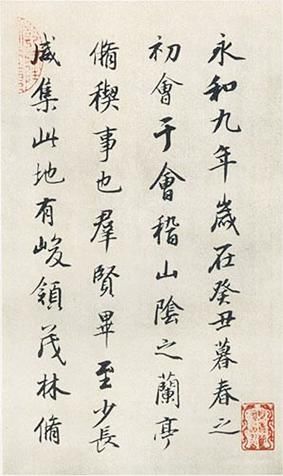 永和九年歲在癸丑暮春之
初會于會稽山陰之蘭亭
脩稧事也羣賢畢至少長
咸集此地有峻領茂林脩